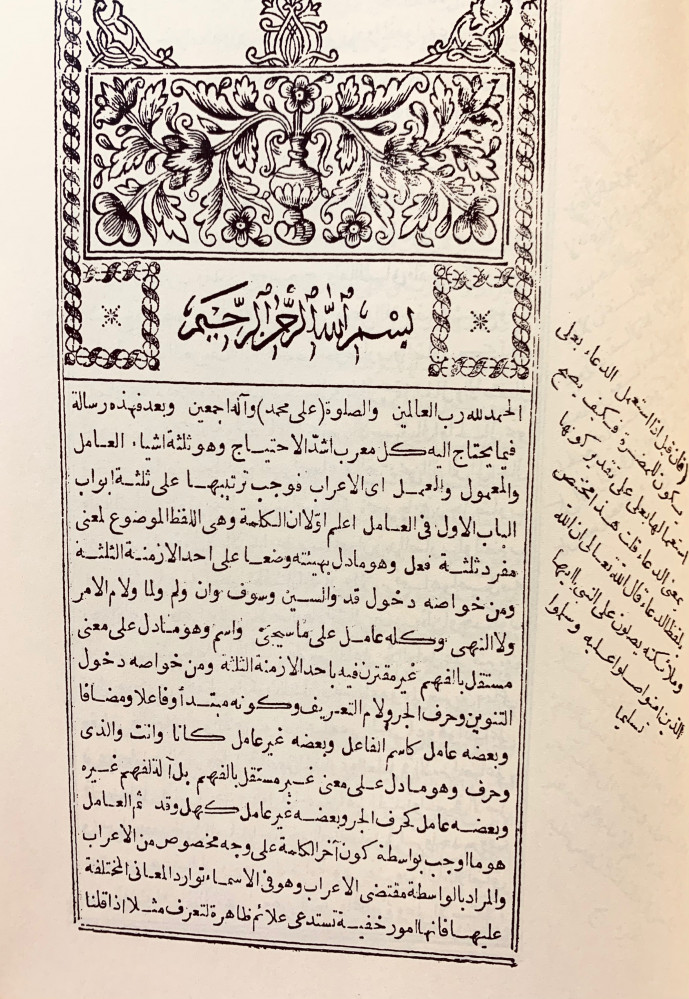 بسم الله الرحمن الرحيم
الحمد لله رب العالمين والصلوة (على محمد) وآله اجمعين وبعد فهذه رسالة
فيما يحتاج اليه كل معرب اشد الاحتياج وهو ثلثة اشياء العامل
والمعمول والعمل اى الاعراب فوجب ترتيبها على ثلثة ابواب
الباب الاول فى العامل اعلم اولا ان الكلمة وهى اللفظ الموضوع لمعنى
مفرد ثلثة فعل وهو مادل بهيئته وضعا على احد الازمنة الثلثة
ومن خواصه دخول قد والسين وسوف وان ولم ولما ولام الامر
ولا النهى وكله عامل على ما سيجئ واسم وهو مادل على معنى
مستقل بالفهم غير مقترن فيه باحد الازمنة الثلثة ومن خواصه دخول
التنوين وحرف الجر ولام التعريف وكونه مبتدأ وفاعلا ومضافا
وبعضه عامل كاسم الفاعل وبعضه غير عامل كانا وانت والذى
وحرف وهو مادل على معنى غير مستقل بالفهم بل آلة لفهم غيره
وبعضه عامل كحرف الجر وبعضه غير عامل كهل وقد ثم العامل
هو ما اوجب بواسطة كون آخر الكلمة على وجه مخصوص من الاعراب
والمراد بالواسطة مقتضى الاعراب وهو فى الاسماء توارد المعانى المختلفة
عليها فانها امور خفية تستدعى علائم ظاهرة لتعرف مثلا اذا قلنا
(فان قيل اذا استعمل الدعاء بعلى
يكون للمضرة فكيف يصح
استعمالها بعلى على تقدير كونها
بمعنى الدعاء قلت هذا مختص
بلفظ الدعاء قال الله تعالى ان الله
وملائكته يصلون على النبى يا ايها
الذين امنوا صلوا عليه وسلموا
تسليما